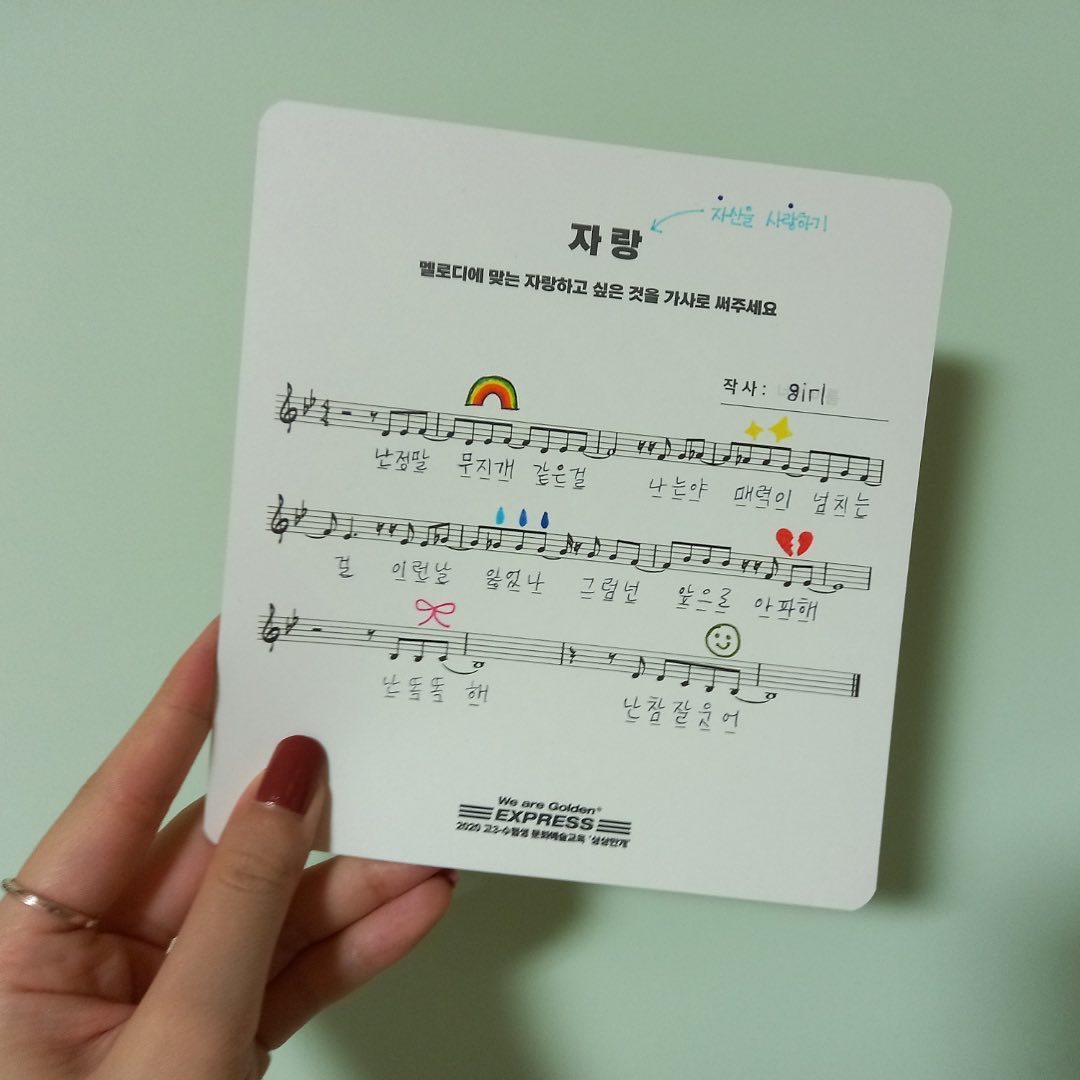 자산을 사랑하기
자랑
멜로디에 맞는 자랑하고 싶은 것을 가사로 써주세요
작사 : girl
난정말 무지개 같은걸 나는야 매력이 넘치는
걸 이런날 잃었나 그럼넌 앞으로 아파해
난똑똑해 난참잘웃어
We are Golden®
EXPRESS
2020 고3-수험생 문화예술교육 '상상만개'